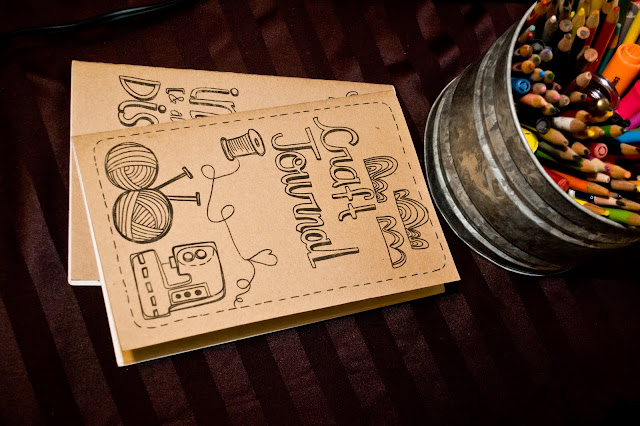 Craft
Journal
Is a
Dis